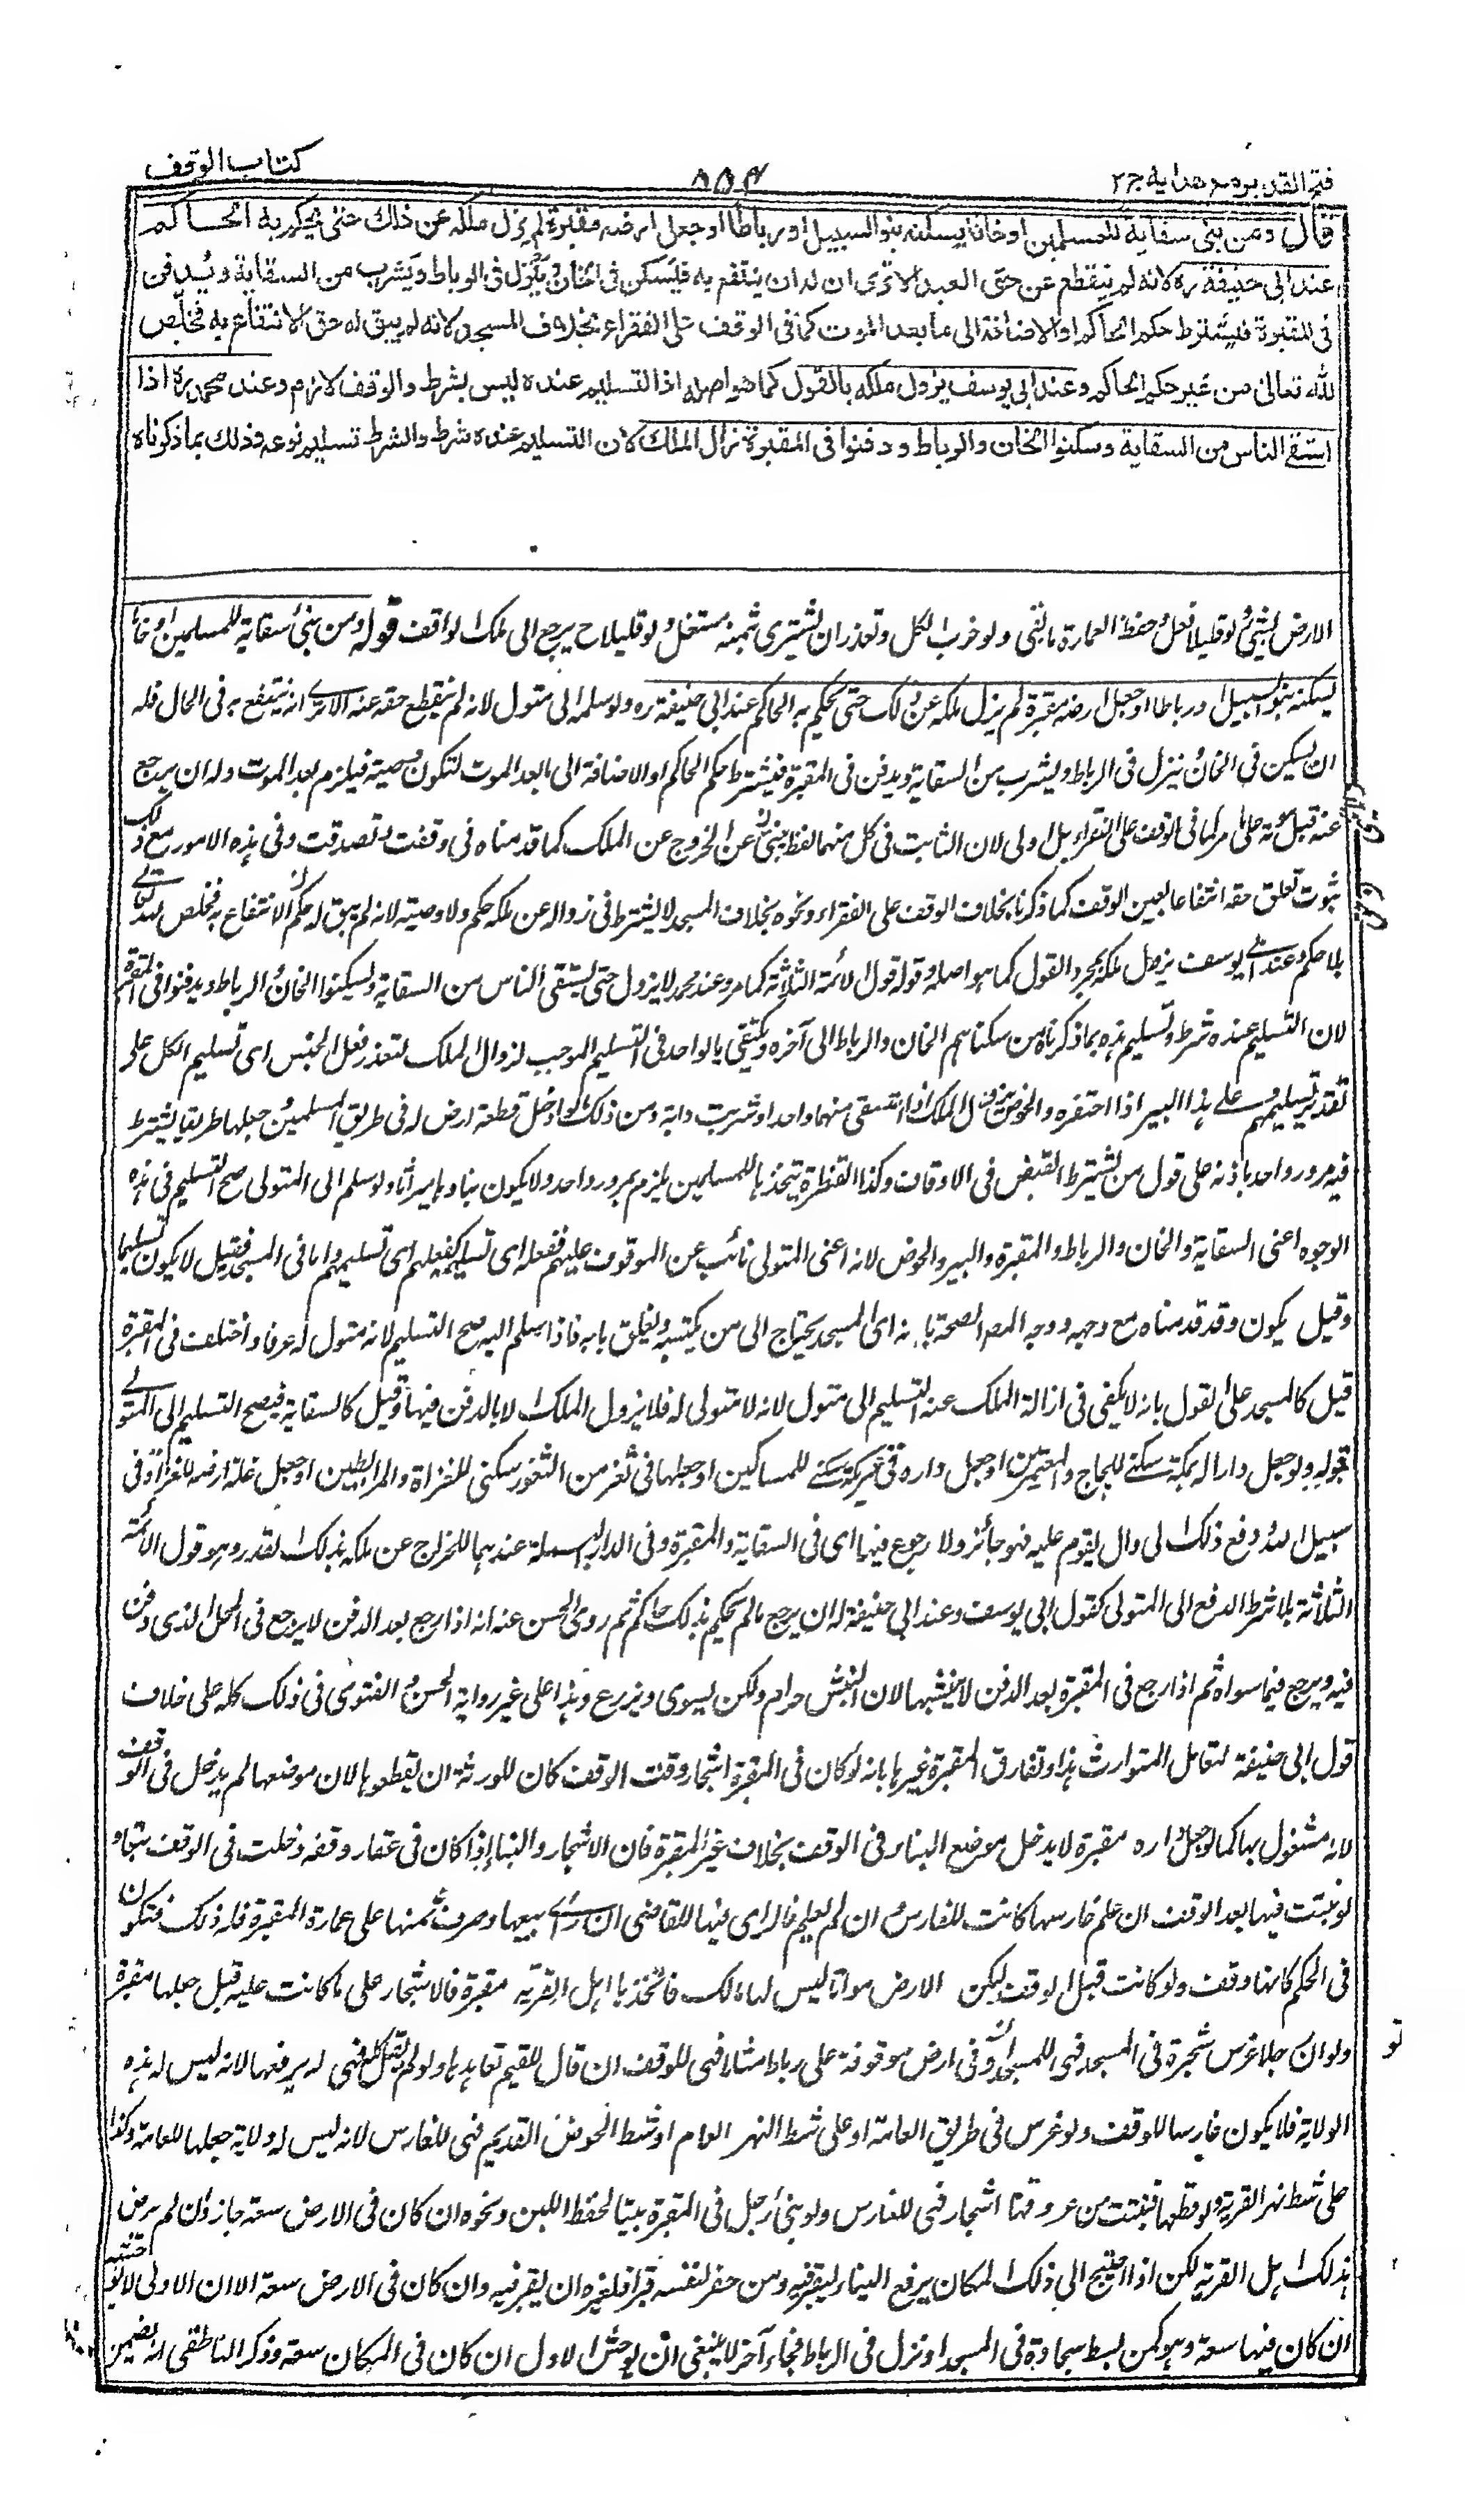 فتح القدير مع هداية ج٢
٨٥٤
كتاب الوقف
قال ومن بنى سقاية للمسلمين او خانا يسكنه بنو السبيل او رباطا او جعل ارضه مقبرة لم يزل ملكه عن ذلك حتى يحكم به الحاكم
عند ابى حنيفة ره لانه لم ينقطع عن حق العبد الا ترى ان له ان ينتفع به فيسكن فى الخان وينزل فى الرباط ويشرب من السقاية ويدفن
فى المقبرة فيشترط حكم الحاكم او الاضافة الى ما بعد الموت كما فى الوقف على الفقراء بخلاف المسجد لانه لم يبق له حق الانتفاع به فخلص
لله تعالى من غير حكم الحاكم وعند ابى يوسف يزول ملكه بالقول كما هو اصله اذ التسليم عنده ليس بشرط والوقف لازم وعند محمد ره اذا
استقى الناس من السقاية وسكنوا الخان والرباط ودفنوا فى المقبرة زال الملك لان التسليم عنده شرط والشرط تسليم نوعه وذلك بما ذكرناه
الارض بشئ ولو قليلا فعل وحفظ العمارة ما بقى ولو خرب الكل وتعذر ان يشترى بثمنه مستغل ولو قليلا ح يرجع الى ملك الواقف قوله ومن بنى سقاية للمسلمين او خانا
يسكنه بنو السبيل او رباطا او جعل ارضه مقبرة لم يزل ملكه عن ذلك حتى يحكم به الحاكم عند ابى حنيفة ره ولو سلمه الى متول لانه لم ينقطع حقه عنه الا ترى انه ينتفع به فى الحال فله
ان يسكن فى الخان وينزل فى الرباط ويشرب من السقاية ويدفن فى المقبرة فيشترط حكم الحاكم او الاضافة الى ما بعد الموت لتكون وصية فيلزم بعد الموت وله ان يرجع
عنه قبل موته على ما مر كما فى الوقف على الفقراء بل اولى لان الثابت فى كل منهما لفظ ينبئ عن الخروج عن الملك كما قدمناه فى وقفت وتصدقت وفى هذه الامور مع ذلك
ثبوت تعلق حقه انتفاعا بعين الوقف كما ذكرنا بخلاف الوقف على الفقراء ونحوه بخلاف المسجد لا يشترط فى زواله عن ملكه حكم ولا وصية لانه لم يبق له حكم الانتفاع به فخلص لله تعالى
بلا حكم وعند ابى يوسف يزول ملكه بمجرد القول كما هو اصله وقوله قول الائمة الثلاثة كما مر وعند محمد لا يزول حتى يستقى الناس من السقاية ويسكنوا الخان والرباط ويدفنوا فى المقبرة
لان التسليم عنده شرط وتسليم هذه بما ذكرناه من سكناهم الخان والرباط الى آخره ويكتفى بالواحد فى التسليم الموجب لزوال الملك لتعذر فعل الجنس اى تسليم الكل على
تقدير تسليمهم وعلى هذا البير اذا احتفره والحوض يزول الملك اذا استقى منهما واحد او شربت دابة ومن ذلك لو ادخل قطعة ارض له فى طريق المسلمين وجعلها طريقا يشترط
فيه مرور واحد باذنه على قول من يشترط القبض فى الاوقات وكذا القنطرة يتخذها للمسلمين يلزم بمرور واحد ولا يكون بناؤها ميراثا ولو سلم الى المتولى صح التسليم فى هذه
الوجوه اعنى السقاية والخان والرباط والمقبرة والبير والحوض لانه اعنى المتولى نائب عن الموقوف عليهم ففعله اى تسليمه كفعلهم اى تسليمهم واما فى المسجد فقيل لا يكون تسليما
وقيل يكون وقد قدمناه مع وجهه ووجه المص الصحة بانه اى المسجد يحتاج الى من يكنسه ويغلق بابه فاذا سلم اليه صح التسليم لانه متول له عرفا واختلف فى المقبرة
قيل كالمسجد على القول بانه لا يكفى فى ازالة الملك عنه التسليم الى متول لانه لا متولى له فلا يزول الملك الا بالدفن فيها وقيل كالسقاية فيصح التسليم الى المتولى
قوله ولو جعل دارا له بمكة سكنى للحاج والمعتمرين او جعل داره فى غير مكة سكنى للمساكين او جعلها فى ثغر من الثغور سكنى للغزاة والمرابطين او جعل غلة ارضه للغزاة فى
سبيل الله ودفع ذلك الى وال يقوم عليه فهو جائز ولا رجوع فيها اى فى السقاية والمقبرة وفى الدار المسبلة عندهما للخروج عن ملكه بذلك القدر وهو قول الائمة
الثلاثة بلا شرط الدفع الى المتولى كقول ابى يوسف وعند ابى حنيفة له ان يرجع ما لم يحكم بذلك حاكم ثم روى الحسن عنه انه اذا رجع بعد الدفن لا يرجع فى المحل الذى دفن
فيه ويرجع فيما سواه ثم اذا رجع فى المقبرة بعد الدفن لا ينبشها لان النبش حرام ولكن يسوى ويزرع وهذا على غير رواية الحسن والفتوى فى ذلك كله على خلاف
قول ابى حنيفة لتعامل المتوارث هذا وتفارق المقبرة غيرها بانه لو كان فى المقبرة اشجار وقت الوقف كان للورثة ان يقطعوها لان موضعها لم يدخل فى الوقف
لانه مشغول بها كما لو جعل داره مقبرة لا يدخل موضع البناء فى الوقف بخلاف غير المقبرة فان الاشجار والبناء اذا كان فى عقار وقفه دخلت فى الوقف تبعا و
لو نبتت فيها بعد الوقف ان علم غارسها كانت للغارس وان لم يعلم فالراى فيها للقاضى ان راى بيعها وصرف ثمنها على عمارة المقبرة فله ذلك فتكون
فى الحكم كانها وقف ولو كانت قبل الوقف لكن الارض موات ليس لها مالك فاتخذها اهل القرية مقبرة فالاشجار على ما كانت عليه قبل جعلها مقبرة
ولو ان رجلا غرس شجرة فى المسجد فهى للمسجد او فى ارض موقوفة على رباط مثلا فهى للوقف ان قال للقيم تعاهدها ولو لم يقل فهى له يرفعها لانه ليس له هذه
الولاية فلا يكون غارسا للوقف ولو غرس فى طريق العامة او على شط النهر العام او شط الحوض القديم فهى للغارس لانه ليس له ولاية جعلها للعامة وكذا
على شط نهر القرية ولو قطعها فنبتت من عروقها اشجار فهى للغارس ولو بنى رجل فى المقبرة بيتا لحفظ اللبن ونحوه ان كان فى الارض سعة جاز وان لم يرض
بذلك اهل القرية لكن اذا احتيج الى ذلك المكان يرفع البناء ليقبر فيه ومن حفر لنفسه قبرا فلغيره ان يقبر فيه وان كان فى الارض سعة الا ان الاولى لا يوحشه
ان كان فيها سعة وهو كمن بسط سجادة فى المسجد او نزل فى الرباط فجاء آخر لا ينبغى ان يوحش الاول ان كان فى المكان سعة وذكر الناطفى انه يضمن